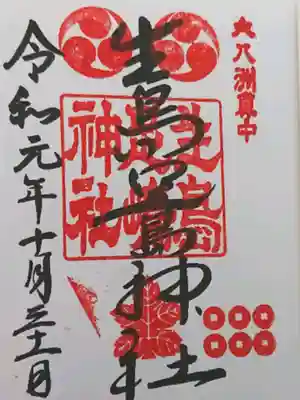 大八洲眞中
生島足島神社
生島
足嶋
神社
令和元年十月三十一日